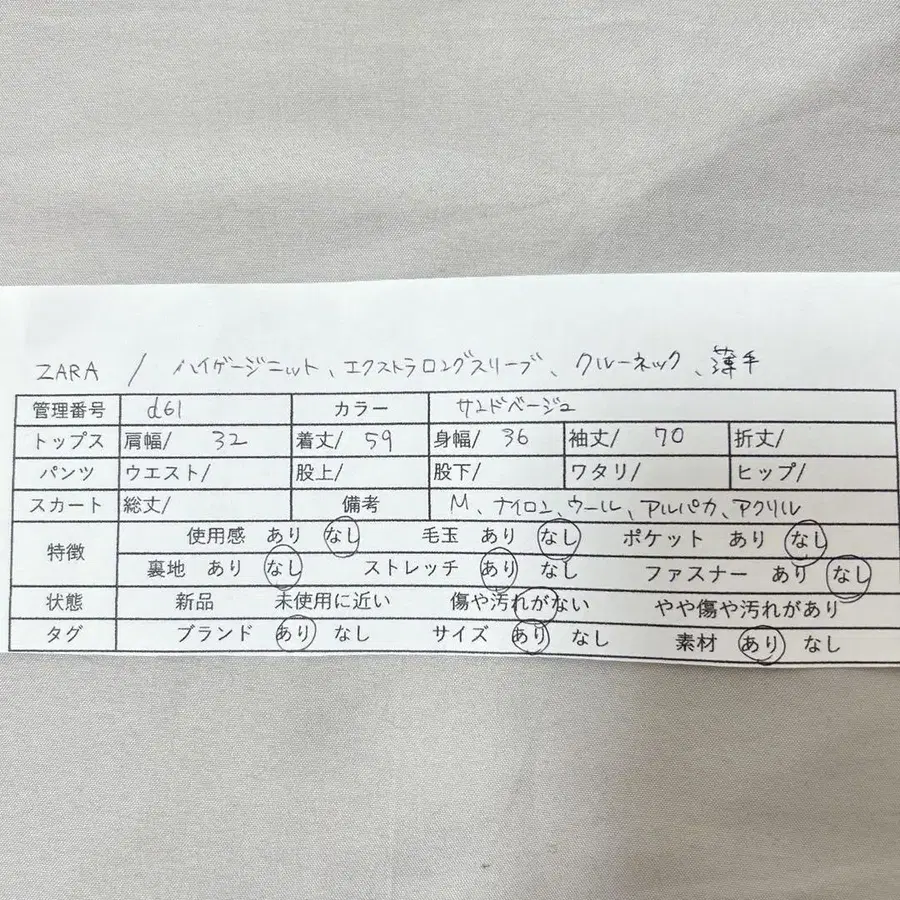 ZARA / ハイゲージニット、エクストラロングスリーブ、クルーネック、薄手
管理番号 d61 カラー サンドベージュ
トップス 肩幅/ 32 着丈/ 59 身幅/ 36 袖丈/ 70 折丈/
パンツ ウエスト/ 股上/ 股下/ ワタリ/ ヒップ/
スカート 総丈/ 備考 M、ナイロン、ウール、アルパカ、アクリル
特徴 使用感 あり なし 毛玉 あり なし ポケット あり なし
裏地 あり なし ストレッチ あり なし ファスナー あり なし
状態 新品 未使用に近い 傷や汚れがない やや傷や汚れがあり
タグ ブランド あり なし サイズ あり なし 素材 あり なし